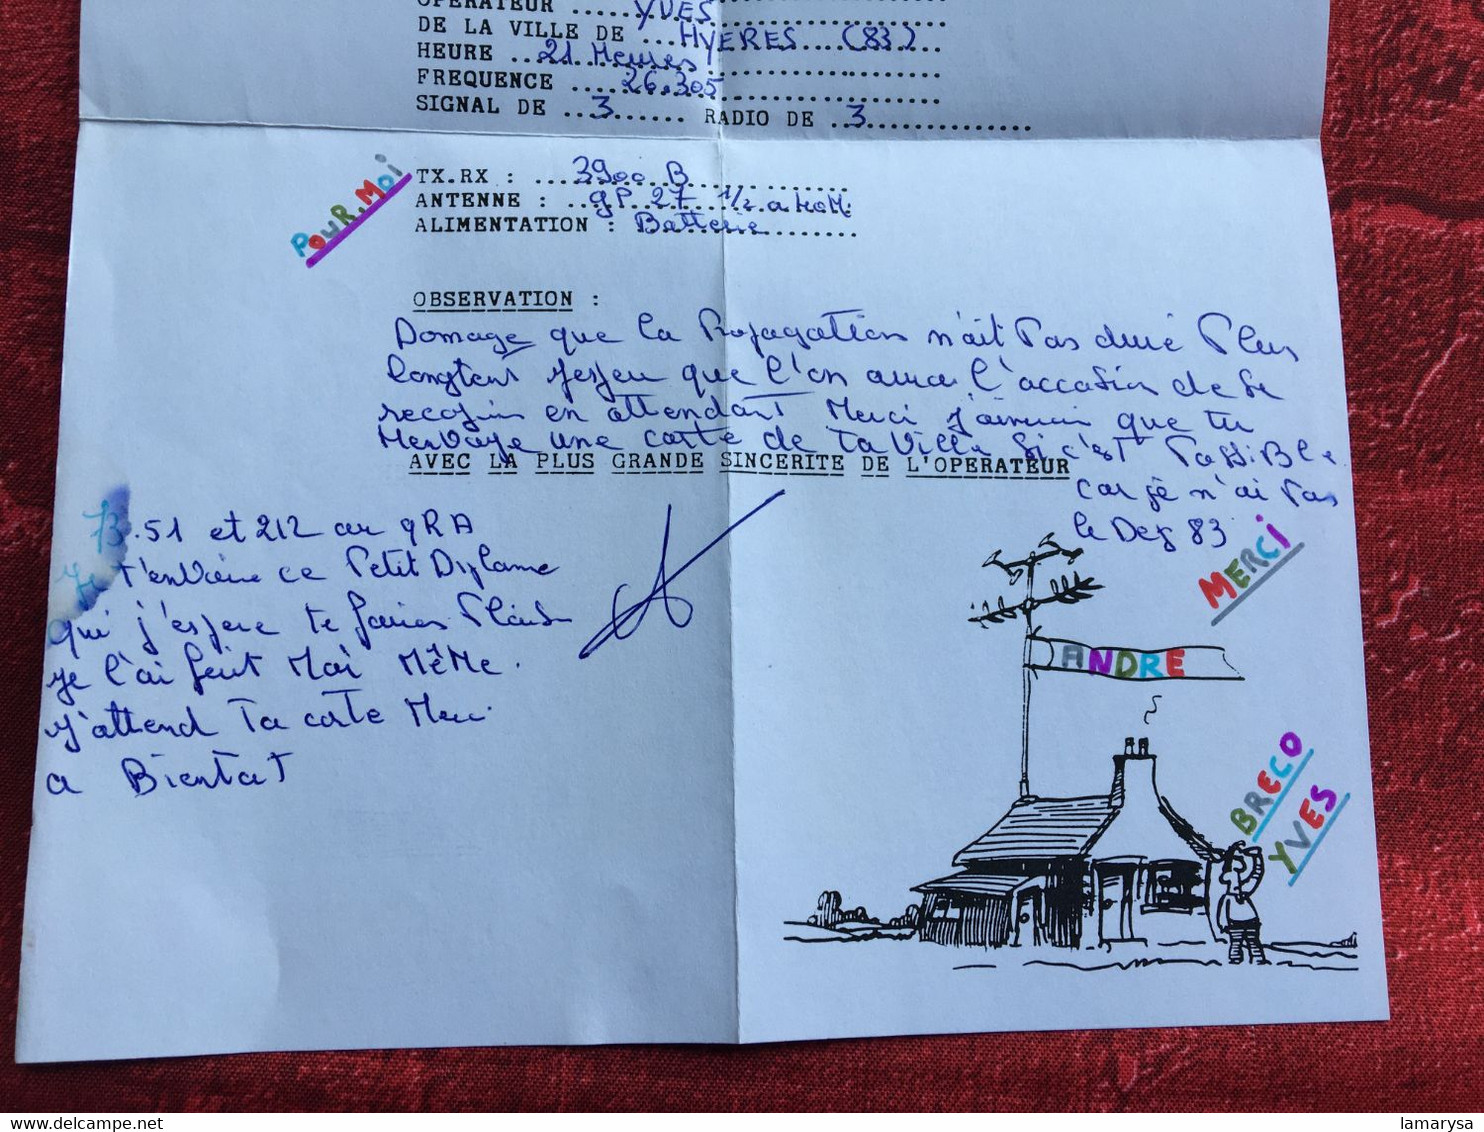 OPERATEUR ...YVES
DE LA VILLE DE ...HYERES....(83)..
HEURE ..21 Heures
FREQUENCE ....26.305
SIGNAL DE ..3...... RADIO DE .3.............
POUR.MOI
TX.RX : ...3900 B
ANTENNE : ..gP 27 1/2 a
ALIMENTATION : Batterie
OBSERVATION :
Domage que la Propagation n'ait Pas duré Plus
longtens que l'on aura l'occasion de se
en attendant Merci que tu
une carte de ta ville si c'est Possible
car je n'ai Pas
le Des 83
AVEC LA PLUS GRANDE SINCERITE DE L'OPERATEUR
73.51 et 212 au qRA
Je t'envoie ce Petit Diplome
qui j'espere te
Je l'ai fait Moi MêMe.
J'attend Ta carte Merci
a Bientot
MERCI
ANDRE
BRECO
YVES
lamarysa